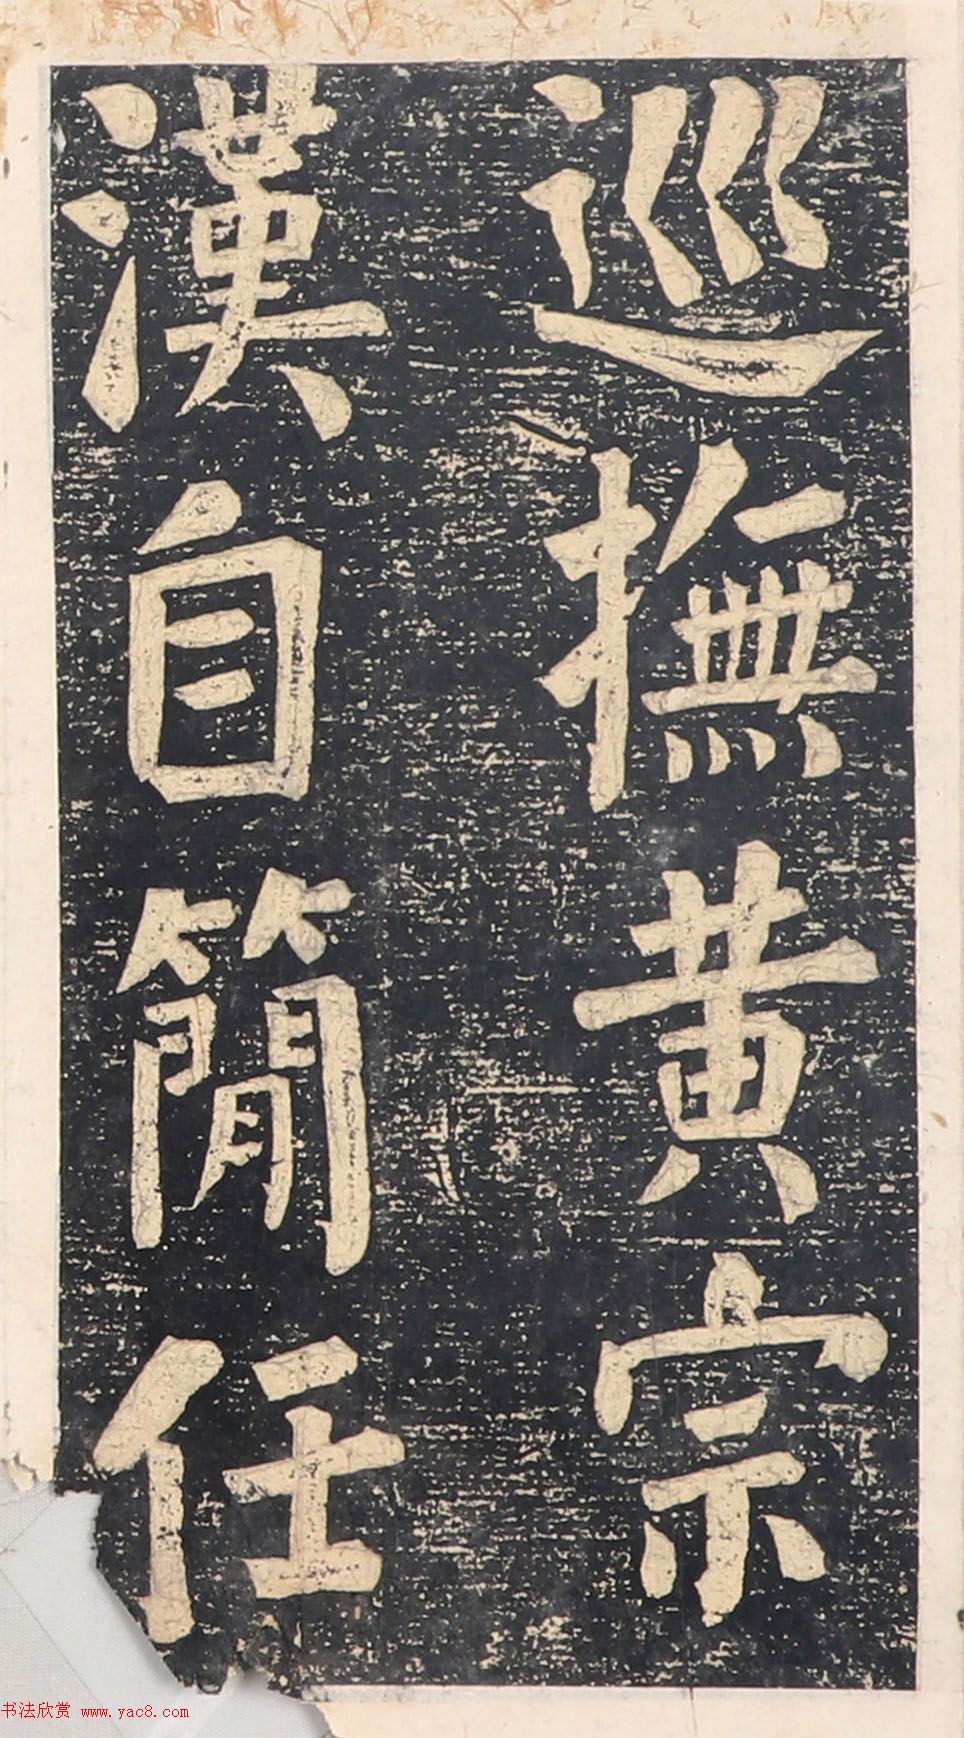 巡撫黃宗
漢自簡任
书法欣赏 www.yac8.com